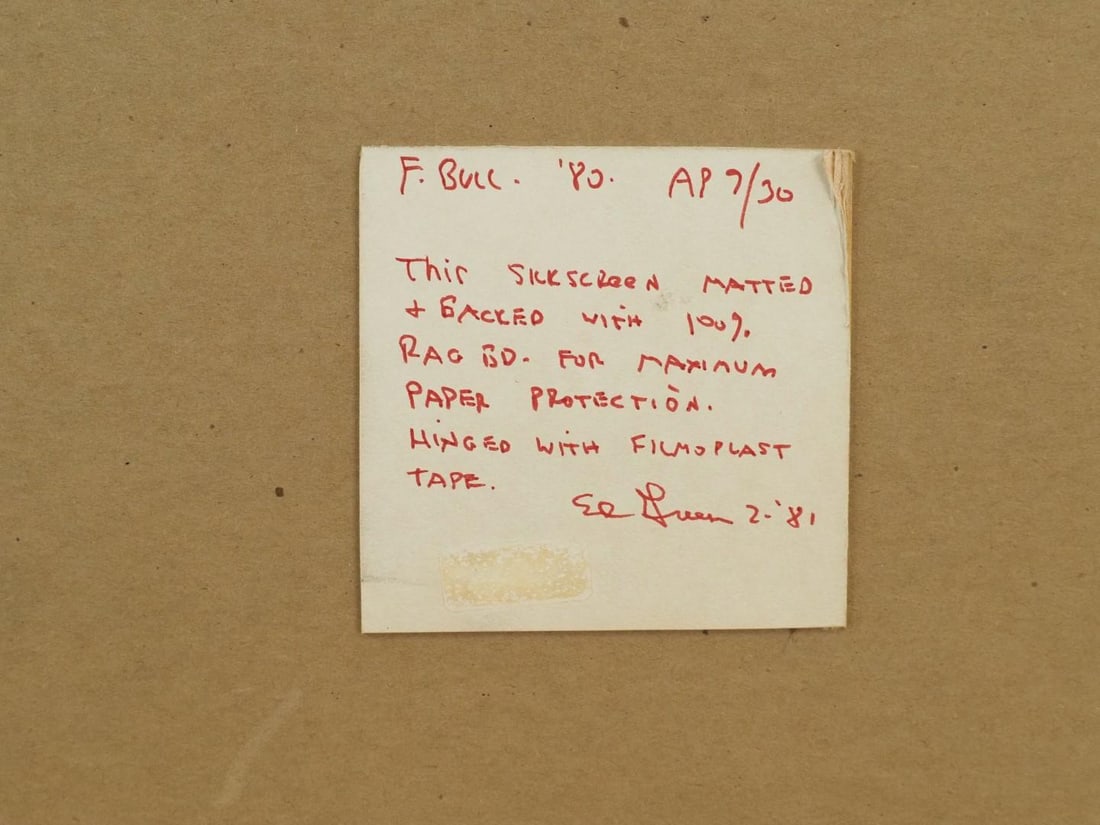 F. BULL. '80. AP 7/30
This SILKSCREEN MATTED
+ BACKED WITH 100%
RAG BD. FOR MAXIMUM
PAPER PROTECTION.
HINGED WITH FILMOPLAST
TAPE.
Ed Green 2-'81